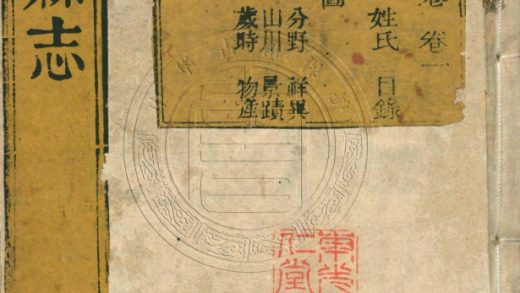 卷 卷一
姓氏 目錄
圖
分野 祥異
山川 景蹟
歲時 物產
志